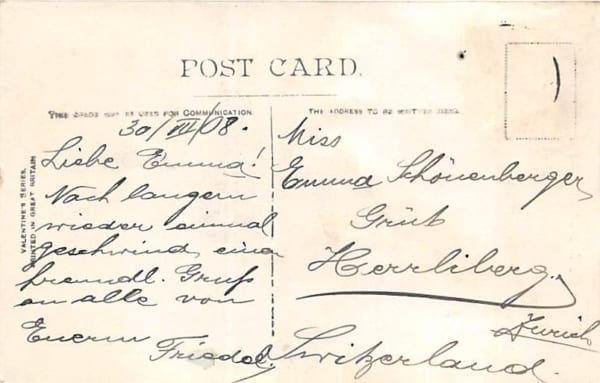 POST CARD.
THIS SPACE MAY BE USED FOR COMMUNICATION.
THE ADDRESS TO BE WRITTEN HERE.
VALENTINE'S SERIES.
PRINTED IN GREAT BRITAIN
30/VII/08.
Liebe Emma!
Nach langem
wieder einmal
geschwind einen
freundl. Gruß
an alle von
Euerm
Friedel.
Miss
Emma Schönenberger
Grüt
Herrliberg.
Zürich
Switzerland.